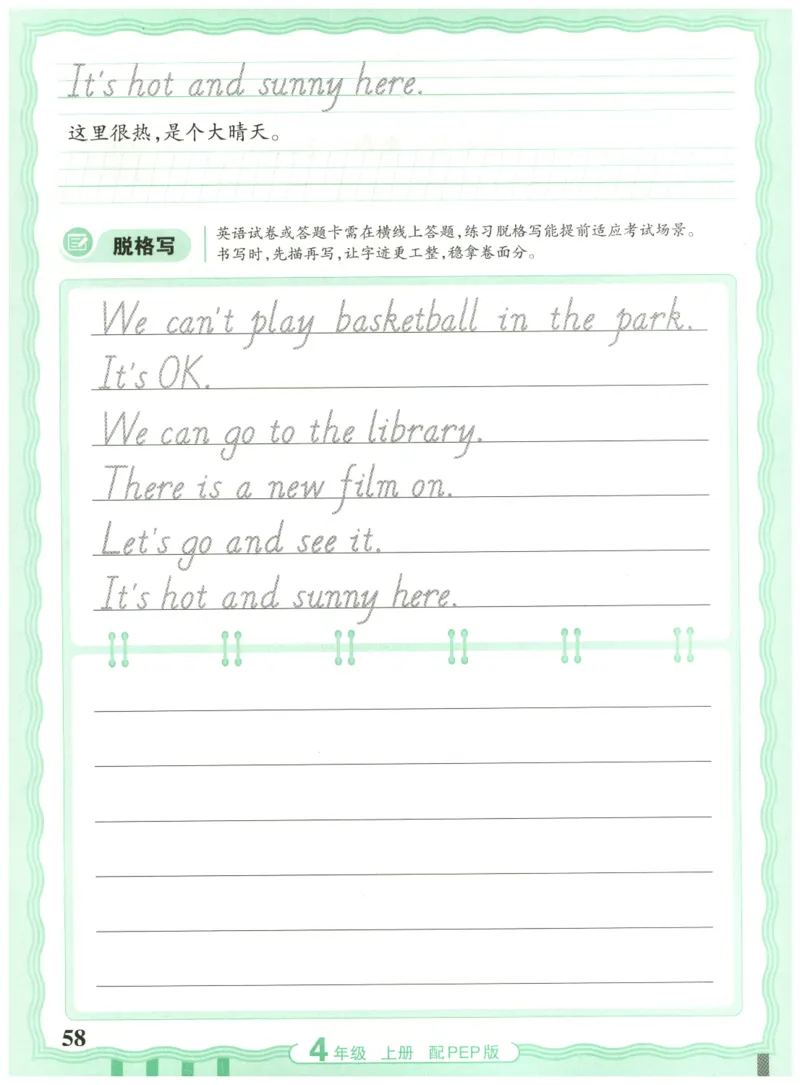 It's hot and sunny here.
这里很热,是个大晴天。
脱格写
英语试卷或答题卡需在横线上答题,练习脱格写能提前适应考试场景。
书写时,先描再写,让字迹更工整,稳拿卷面分。
We can't play basketball in the park.
It's OK.
We can go to the library.
There is a new film on.
Let's go and see it.
It's hot and sunny here.
58
4年级 上册 配PEP版